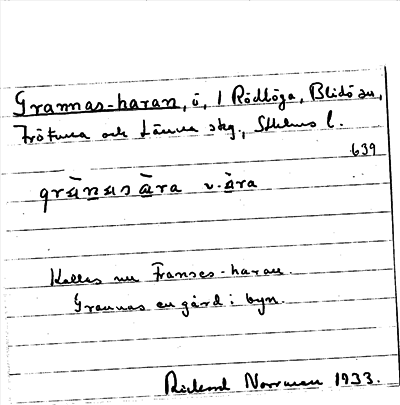 Grannas-haran, ö, i Rödlöga, Blidö sn,
Frötuna och Länna skg., Sthlms l.
639
grànas àra v. àra
Kallas nu Franses-haran.
Grannas en gård i byn.
Rickard Norrman 1933.